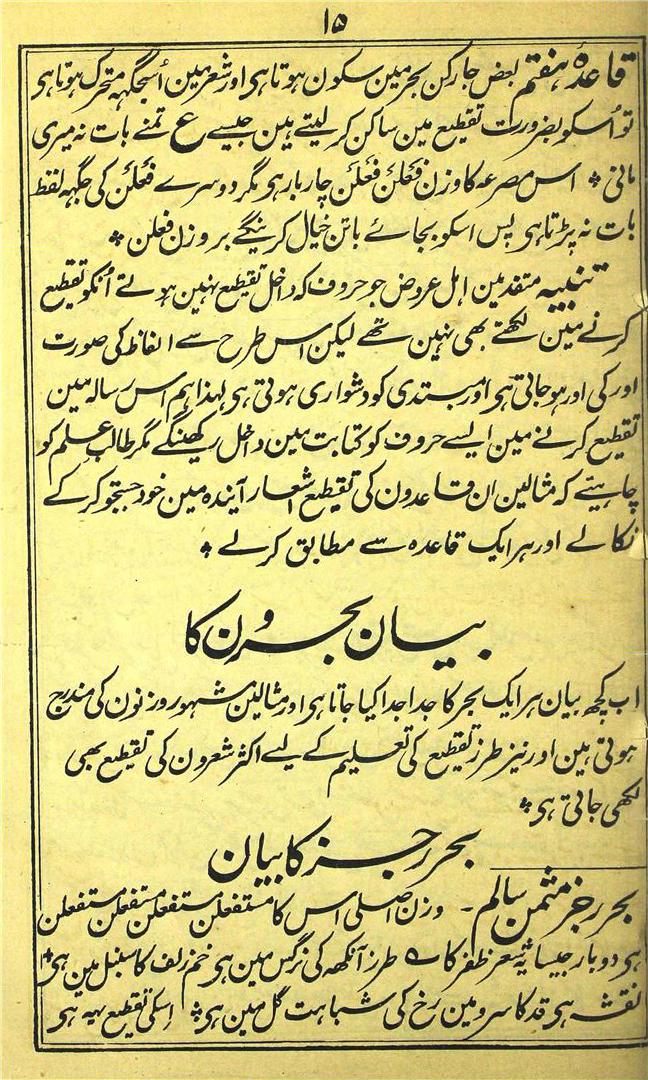 ۱۵
قاعدۂ ہفتم بعض جا رکن بحر مین سکون ہوتا ہی اور شعر مین اُسجگہہ متحرک ہوتا ہی
تو اُسکو بضرورت تقطیع مین ساکن کر لیتے ہین جیسے ع تمنے بات نہ میری
مانی * اس مصرعہ کا وزن فَعْلن فَعْلن چار بار ہی مگر دوسرے فعْلن کی جگہہ لفظ
بات نہ پڑتا ہی پس اسکو بجائے باتن خیال کرینگے بر وزن فعلن *
تنبیہ متقدمین اہل عروض جو حروف کہ داخل تقطیع نہین ہوتے اُنکو تقطیع
کرنے مین لکھتے بھی نہین تھے لیکن اس طرح سے الفاظ کی صورت
اور کی اور ہو جاتی ہی اور مبتدی کو دشواری ہوتی ہی لہذا ہم اس رسالہ مین
تقطیع کرنے مین ایسے حروف کو کتابت مین داخل رکھینگے مگر طالب علم کو
چاہیئے کہ مثالین ان قاعدون کی تقطیع اشعار آیندہ مین خود جستجو کر کے
نکالے اور ہر ایک قاعدہ سے مطابق کر لے *
بیان بحرون کا
اب کچھ بیان ہر ایک بحر کا جدا جدا کیا جاتا ہی اور مثالین مشہور وزنون کی مندرج
ہوتی ہین اور نیز طرز تقطیع کی تعلیم کے لیے اکثر شعرون کی تقطیع بھی
لکھی جاتی ہی *
بحر رجز کا بیان
بحر رجز مثمن سالم ۔ وزن اصلی اس کا مستفعلن مستفعلن مستفعلن مستفعلن
ہی دو بار جیسا یہ شعر ظفر کا ؎ طرز آنکھ کی نرگس مین ہی خم زلف کا سنبل مین ہی *
نقشہ ہی قد کا سرو مین رخ کی شباہت گل مین ہی * اِسکی تقطیع یہہ ہی